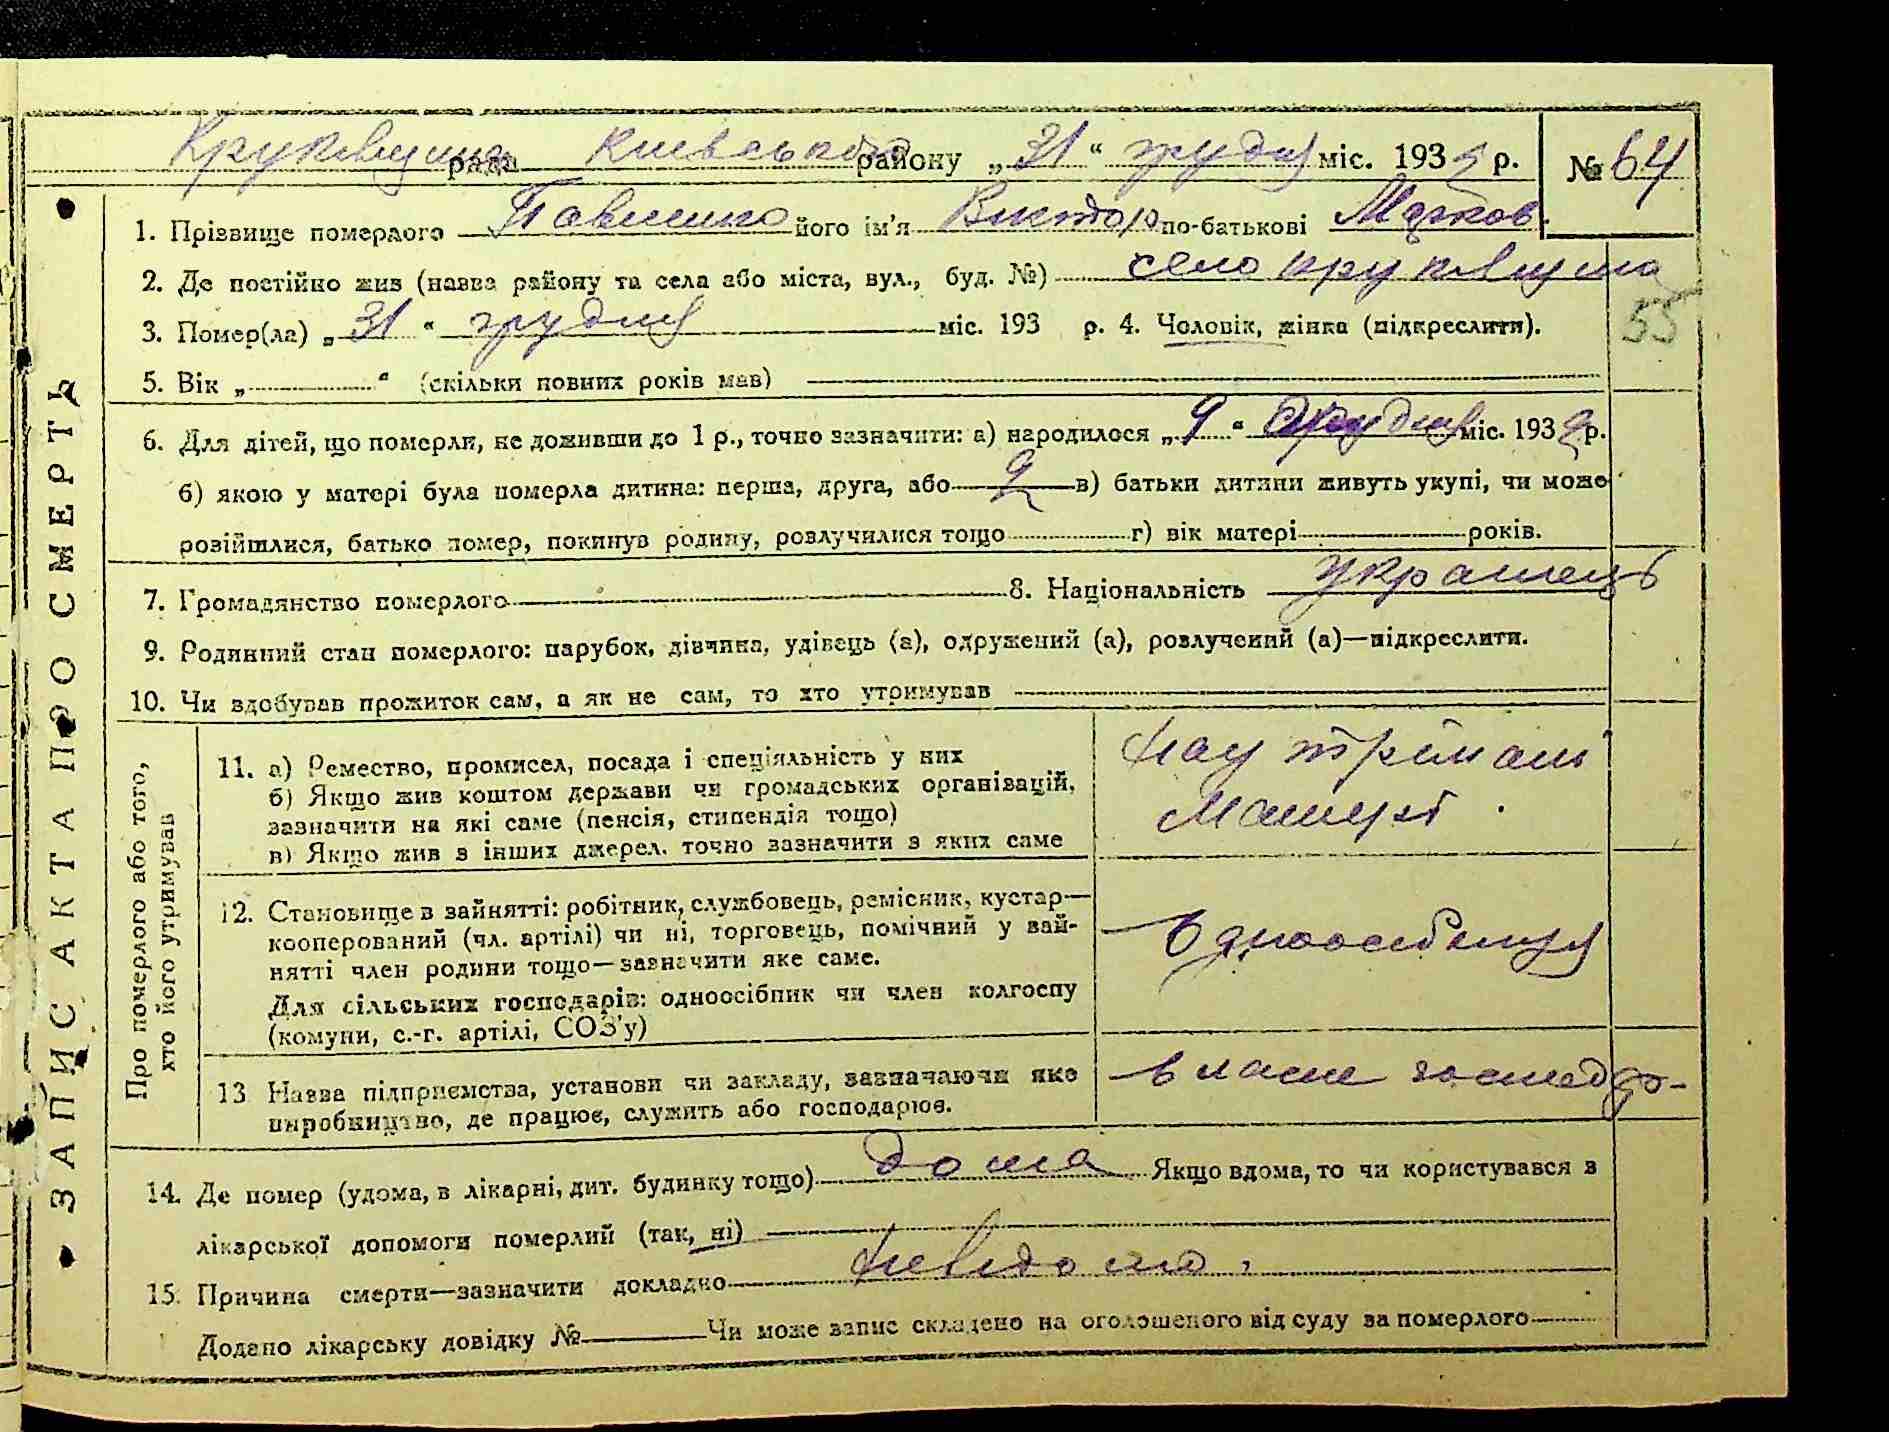 ЗАПИС АКТА ПРО СМЕРТЬ
рада Київського району „31“ грудня міс. 193 р. № 64
1. Прізвище померлого його ім'я Виктор по-батькові Марков.
2. Де постійно жив (назва району та села або міста, вул., буд. №) село
55
3. Помер(ла) „31“ грудня міс. 193 р. 4. Чоловік, жінка (підкреслити).
5. Вік „ “ (скільки повних років мав)
6. Для дітей, що померли, не доживши до 1 р., точно зазначити: а) народилося „9“ грудня міс. 193 р.
б) якою у матері була померла дитина: перша, друга, або 2 в) батьки дитини живуть укупі, чи може
розійшлися, батько помер, покинув родину, розлучилися тощо г) вік матері років.
7. Громадянство померлого 8. Національність українець
9. Родинний стан померлого: парубок, дівчина, удівець (а), одружений (а), розлучений (а)—підкреслити.
10. Чи здобував прожиток сам, а як не сам, то хто утримував
Про померлого або того,
хто його утримував
11. а) Ремество, промисел, посада і спеціяльність у них
б) Якщо жив коштом держави чи громадських організацій,
зазначити на які саме (пенсія, стипендія тощо)
в) Якщо жив з інших джерел, точно зазначити з яких саме
на утримані
Матері.
12. Становище в зайнятті: робітник, службовець, ремісник, кустар—
кооперований (чл. артілі) чи ні, торговець, помічний у зай-
нятті член родини тощо—зазначити яке саме.
Для сільських господарів: одноосібник чи член колгоспу
(комуни, с.-г. артілі, СОЗ'у)
13 Назва підприємства, установи чи закладу, зазначаючи яке
виробництво, де працює, служить або господарює.
власне господар-
14. Де помер (удома, в лікарні, дит. будинку тощо) дома Якщо вдома, то чи користувався з
лікарської допомоги померлий (так, ні)
15. Причина смерти—зазначити докладно невідомо.
Додано лікарську довідку № Чи може запис складено на оголошеного від суду за померлого